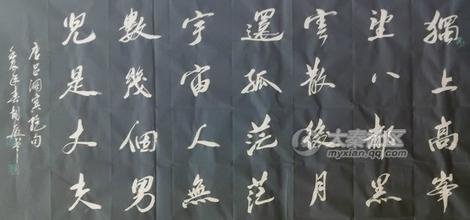 獨上高峯
望八都黑
雲散後月
還孤茫茫
宇宙人無
數幾個男
兒是丈夫
唐吕洞賓句
大秦社区
myxian.qq.com